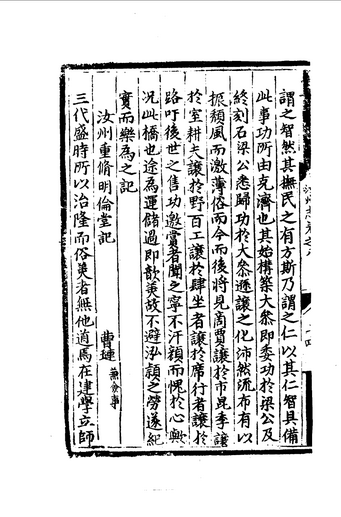 謂之智然其撫民之有方斯乃謂之仁以其仁智具備
此事功所由克濟也其始構築大叅即委功於梁公及
終刻石梁公悉歸功於大叅遜讓之化沛然流布有以
振頹風而激薄俗而今而後將見商賈讓於市昆季讓
於室耕夫讓於野百工讓於肆坐者讓於席行者讓於
路吁後世之售功邀賞者聞之寧不汗顏而愧於心歟
況此橋也途為運儲過即歆羙故不避泓頴之勞遂紀
實而樂為之記
汝州重脩明倫堂記
曹璉 兼僉事
三代盛時所以治隆而俗羙者無他道焉在建學立師